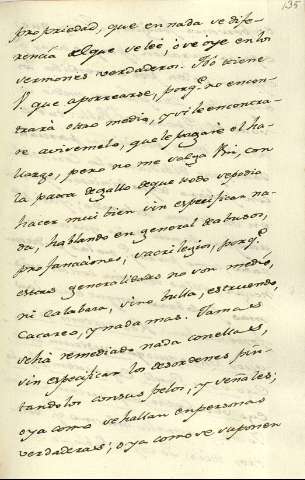 135
propriedad, que en nada se dife-
rencia el que se lee, ò se oye en los
sermones verdaderos. No tiene
V. que aporrearse, porq.e no encon-
trarà otro medio, y si le encontra-
re avisemelo, que le pagarè el ha-
llazgo, pero no me salga V. con
la pata de gallo de que todo se podia
hacer mui bien sin especificar na-
da, hablando en general de abusos,
profanaciones, sacrilegios, porq.e
estas generalidades no son medio,
ni calabaza, sino bulla, estruendo,
cacareo, y nada mas. Jamas
se ha remediado nada con ellas,
sin especificar los desordenes pin-
tandolos con sus pelos, y señales;
o ya como se hallan en personas
verdaderas; o ya como se suponen